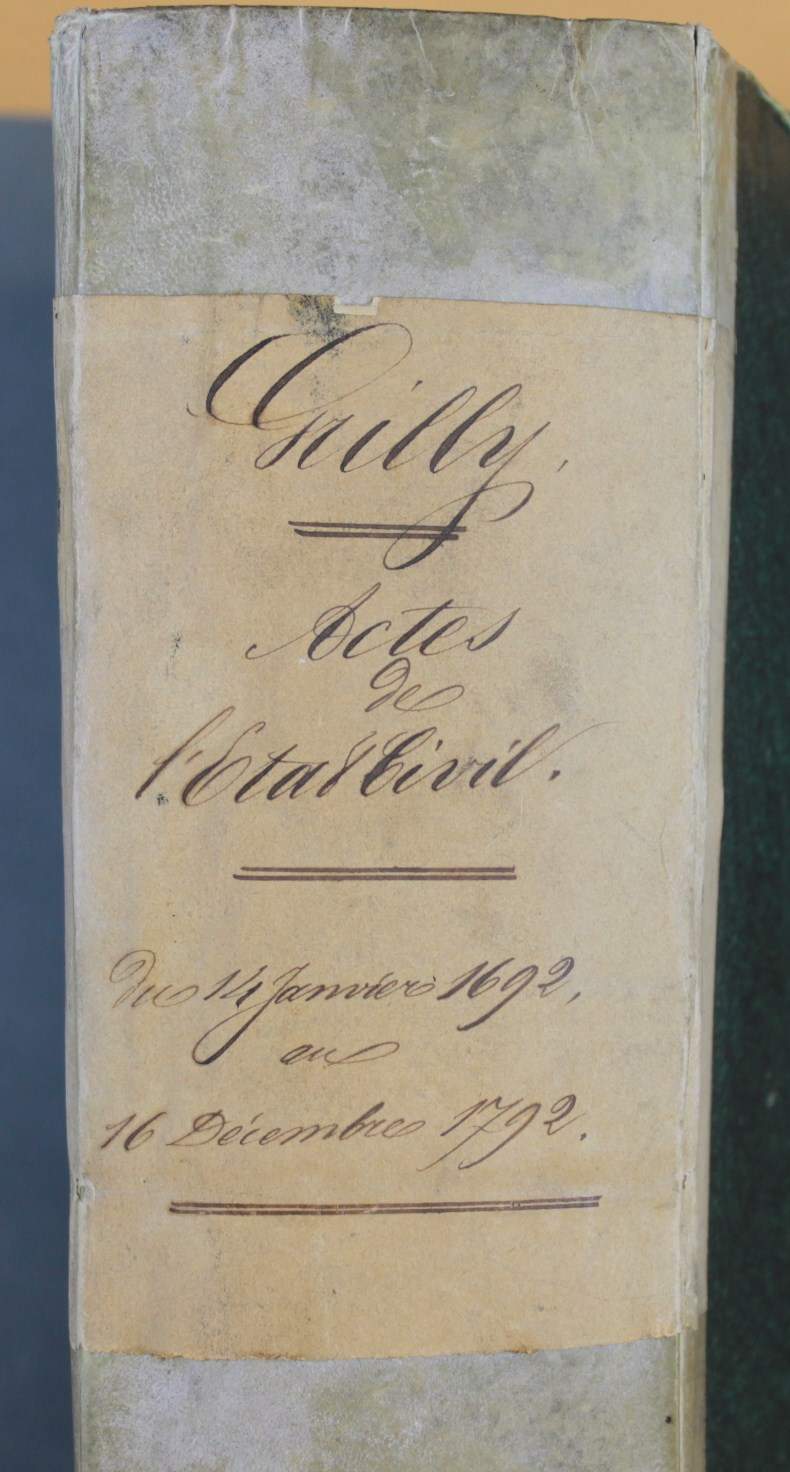 Grilly.
Actes
de
l'Etat Civil.
du 14 Janvier 1692,
au
16 Décembre 1792.